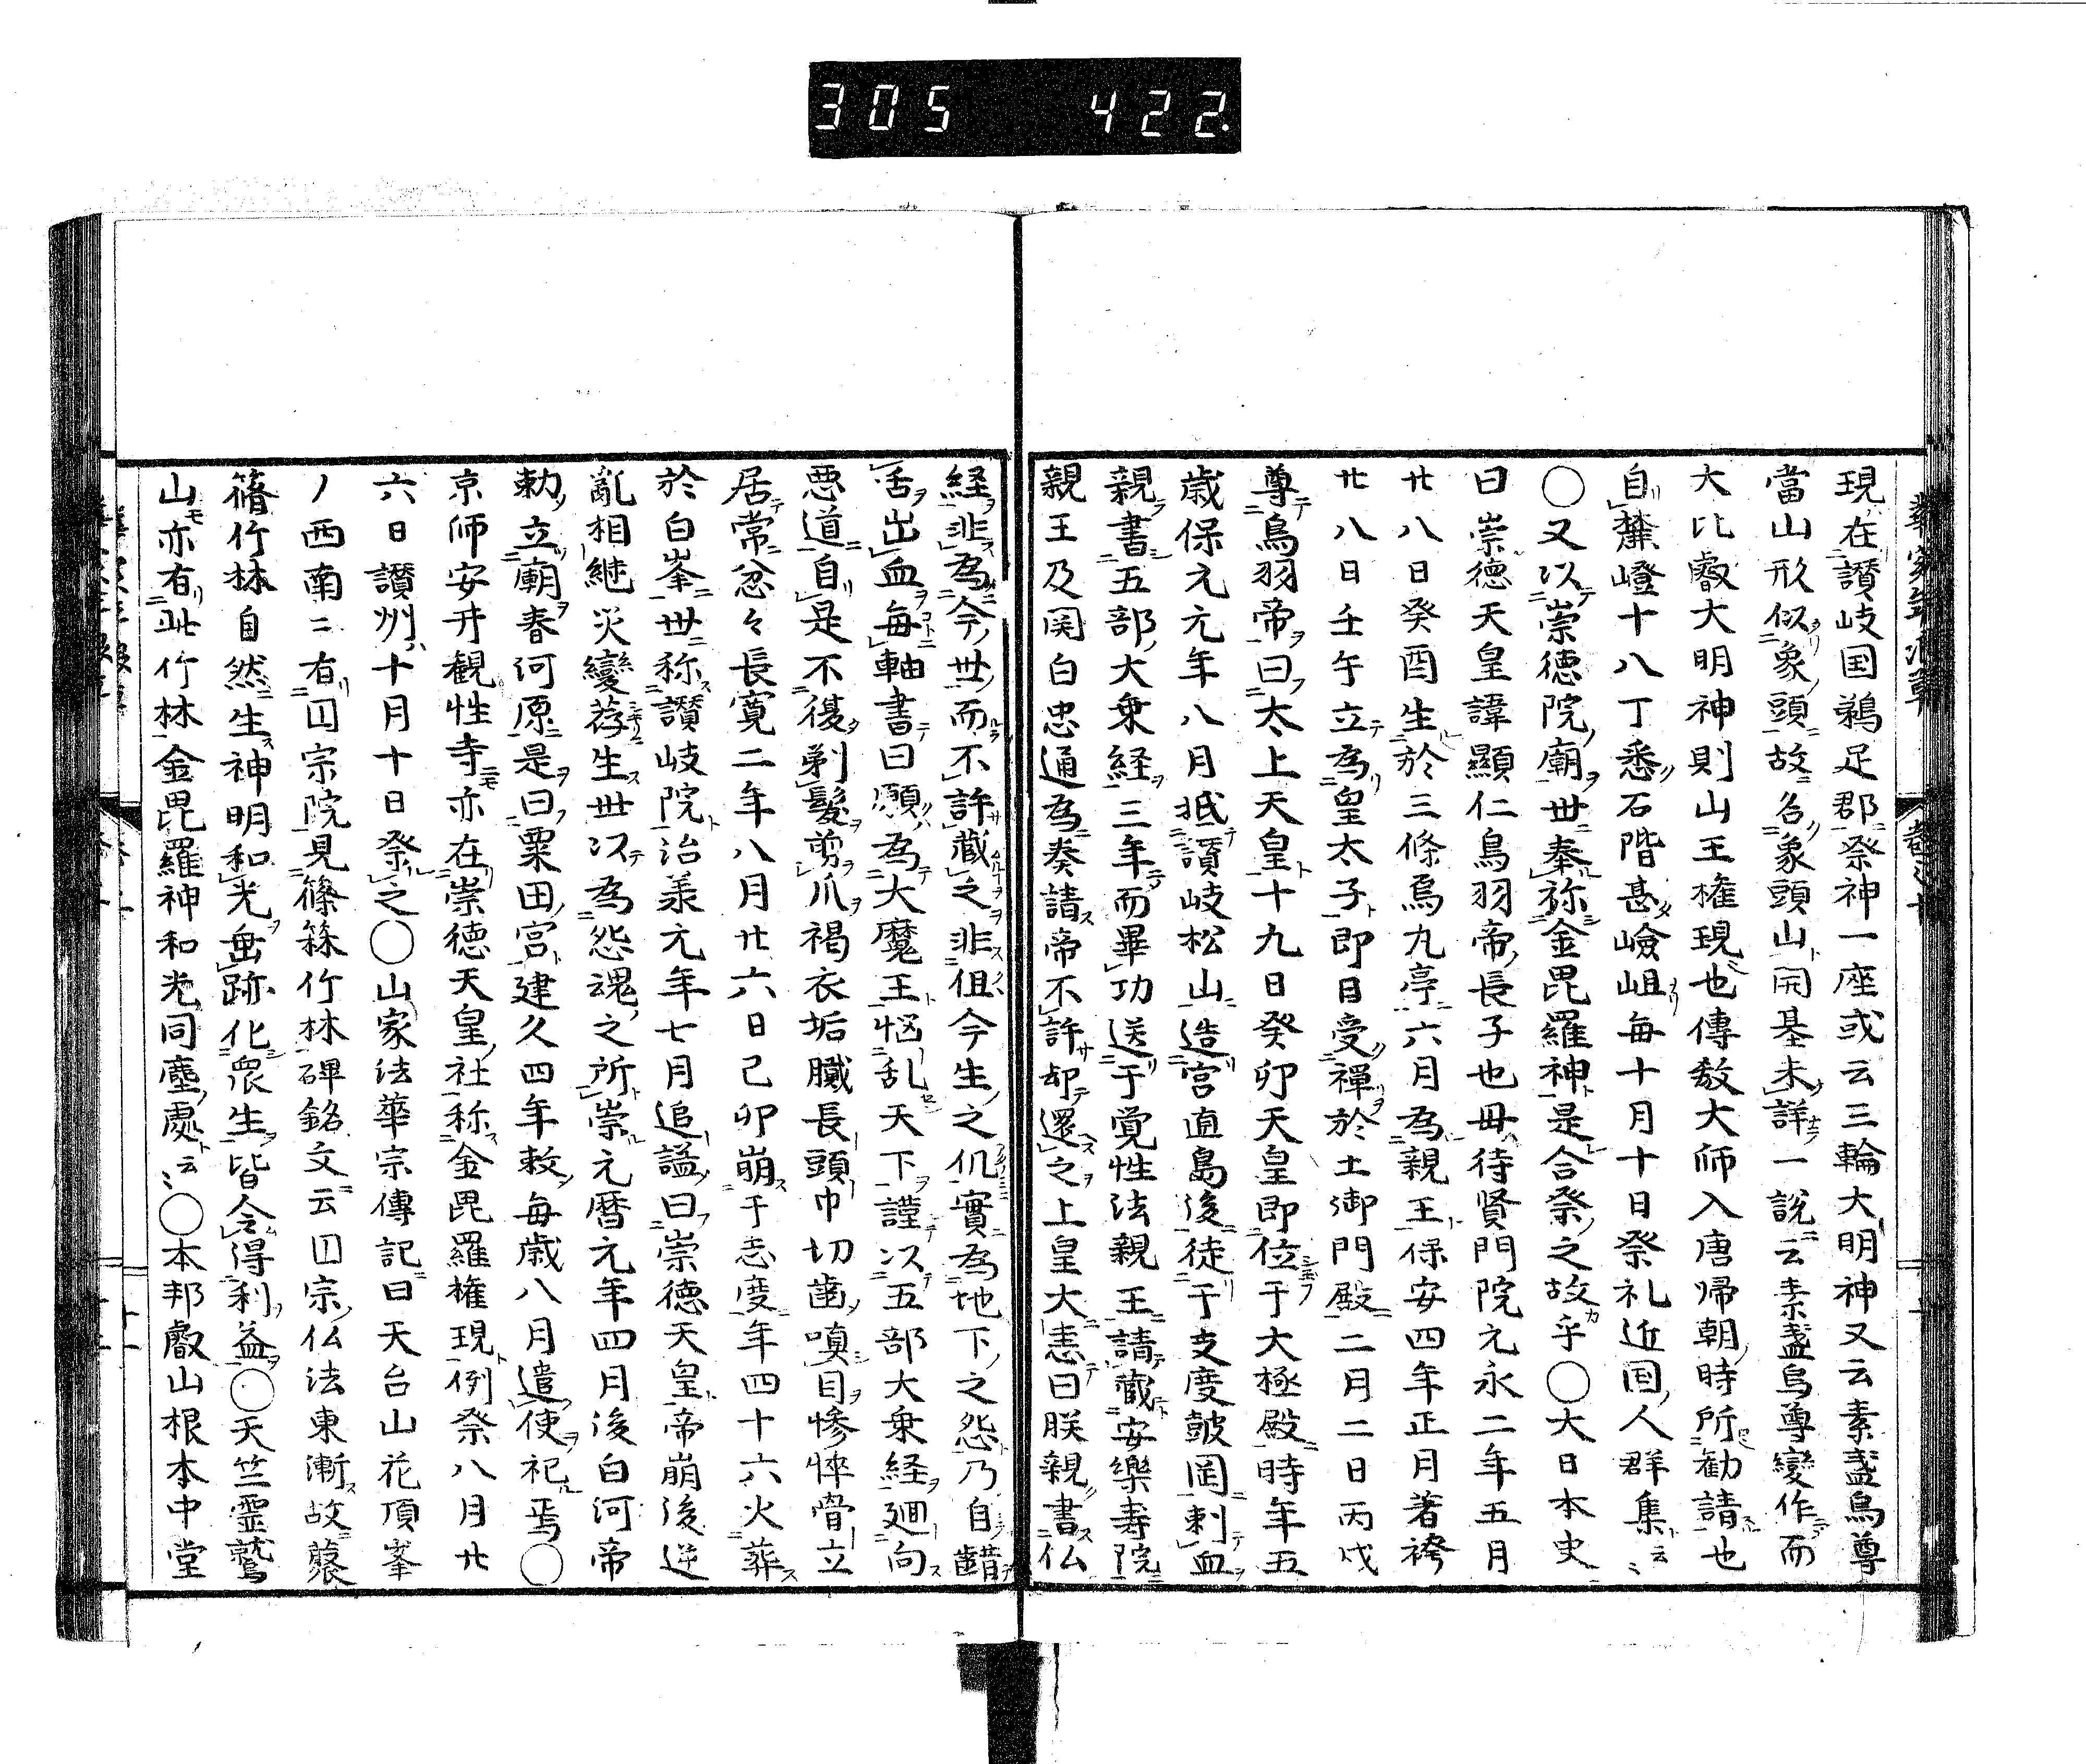 305 422.
現在讃岐国鵜足郡祭神一座或云三輪大明神又云素盞烏尊
當山形似象頭故名象頭山開基未詳一説云素盞烏尊變作而
大比叡大明神則山王権現也傳教大師入唐帰朝時所勧請也
自麓嶝十八丁悉石階甚嶮岨毎十月十日祭礼近国人群集云〻
〇又以崇徳院廟世奉祢金毘羅神是合祭之故乎〇大日本史
曰崇徳天皇諱顯仁鳥羽帝長子也毋待賢門院元永二年五月
廿八日癸酉生於三條烏丸亭六月為親王保安四年正月著袴
廿八日壬午立為皇太子即日受禪於土御門殿二月二日丙戌
尊鳥羽帝曰太上天皇十九日癸卯天皇即位于大極殿時年五
歳保元元年八月抵讃岐松山造宮直島後徒于支度皷岡刺血
親書五部大乗経三年而畢功送于覚性法親王請蔵安樂寿院
親王及関白忠通為奏請帝不許却還之上皇大恚曰朕親書仏
経非為今世而不許蔵之非徂今生之仇實為地下之怨乃自齰
舌出血毎軸書曰願為大魔王悩乱天下謹以五部大乗経廻向
悪道自是不復剃髮剪爪褐衣垢膩長頭巾切歯嗔目惨悴骨立
居常忿々長寛二年八月廿六日己卯崩于志度年四十六火葬
於白峯世称讃岐院治羕元年七月追謚曰崇徳天皇帝崩後逆
亂相継災變荐生世以為怨魂之所崇元暦元年四月後白河帝
勅立廟春河原是曰粟田宮建久四年敕毎歳八月遣使祀焉〇
京師安井観性寺亦在崇徳天皇社称金毘羅権現例祭八月廿
六日讃州十月十日祭之〇山家法華宗傳記曰天台山花頂峯
ノ西南ニ有囗宗院見篠篠竹林碑銘文云囗宗仏法東漸故蘘
篠竹林自然生神明和光垂跡化衆生皆令得利益〇天竺霊鷲
山亦有此竹林金毘羅神和光同塵處云〻〇本邦叡山根本中堂